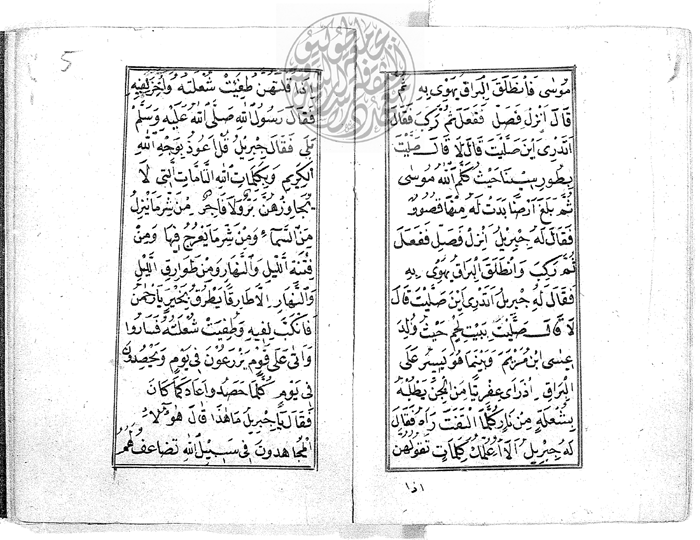 موسى فانطلق البراق يهوى به ثم
قال انزل فصل ففعل ثم ركب فقال
اتدرى اين صليت قال لا قال صليت
بطور سينا حيث كلم الله موسى
ثم بلغ ارضا بدت له منها قصور
فقال له جبريل انزل فصل ففعل
ثم ركب وانطلق البراق يهوى به
فقال له جبريل اتدرى اين صليت قال
لا قال صليت ببيت لحم حيث ولد
عيسى ابن مريم وبينما هو يسير على
البراق اذ راى عفريتا من الجن يطلبه
بشعلة من نار كلما التفت راه فقال
له جبريل الا اعلمك كلمات تقولهن
اذا
5
اذا قلتهن طفيت شعلته وخر لفيه
فقال رسول الله صلى الله عليه وسلم
بلى فقال جبريل قل اعوذ بوجه الله
الكريم وبكلمات الله التامات التى لا
يجاوزهن بر ولا فاجر من شر ما ينزل
من السماء ومن شر ما يعرج فيها ومن
فتنة الليل والنهار ومن طوارق الليل
والنهار الا طارقا يطرق بخير يا رحمن
فانكب لفيه وطفيت شعلته فساروا
واتى على قوم يزرعون فى يوم ويحصدون
فى يوم كلما حصدوا عاد كما كان
فقال يا جبريل ما هذا قال هولاء
المجاهدون فى سبيل الله تضاعف لهم